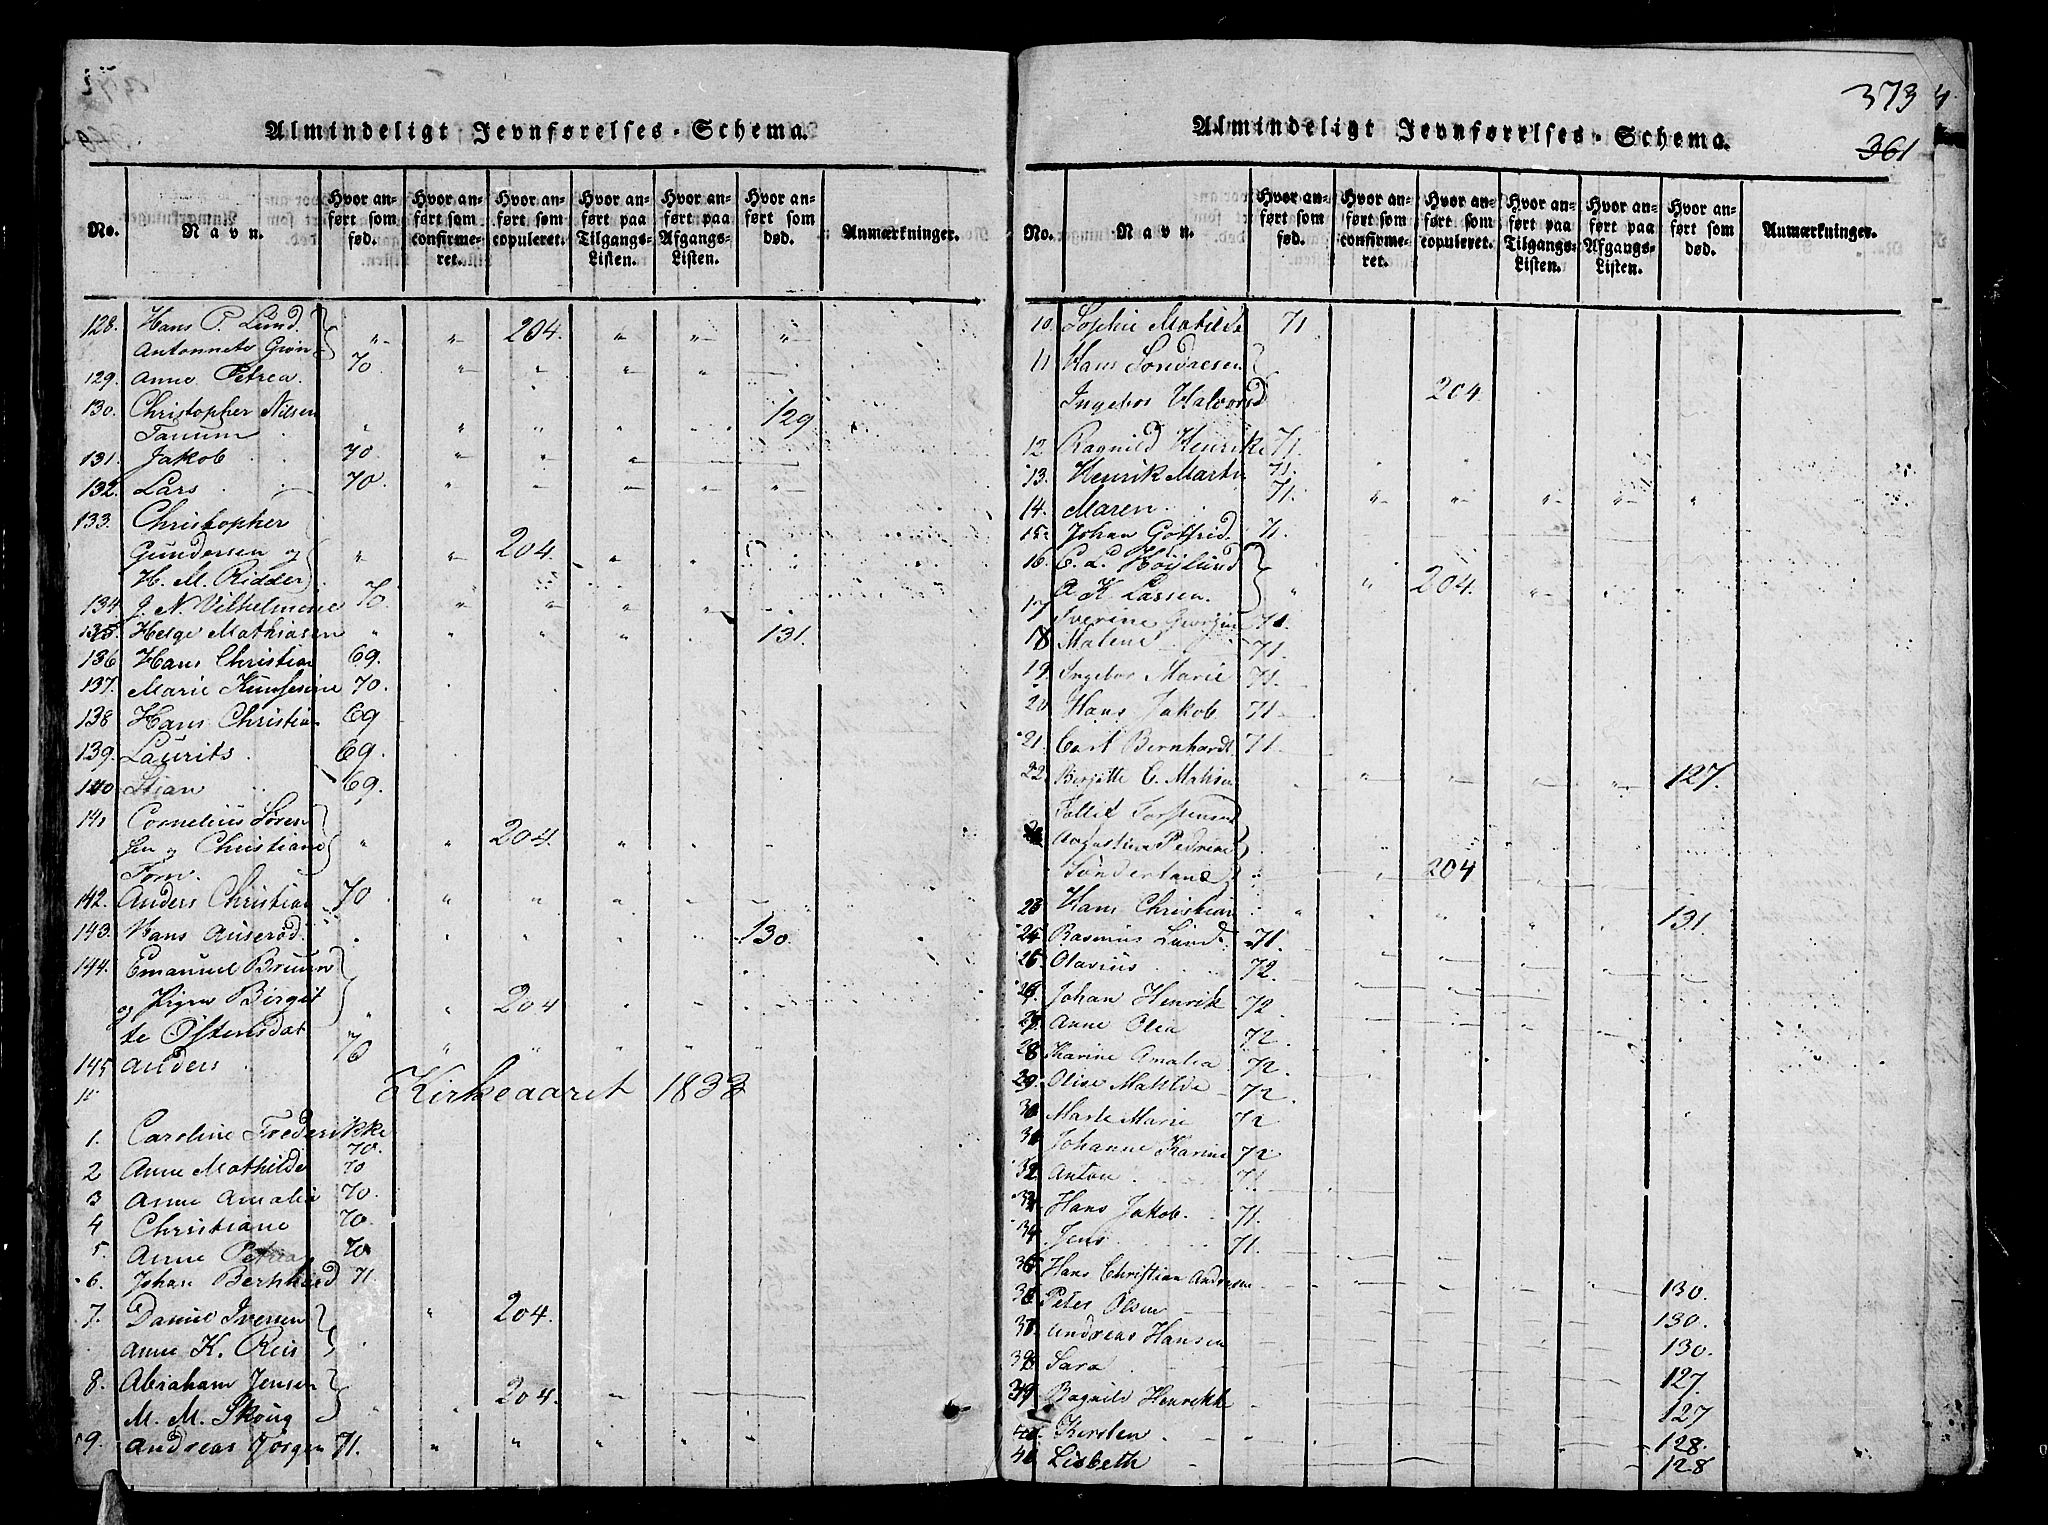 Almindeligt Jevnførelses-Schema.
No. Navn. Hvor anført som fød. Hvor anført som confirmeret. Hvor anført som copuleret. Hvor anført paa Tilgangs-Listen. Hvor anført paa Afgangs-Listen. Hvor anført som død. Anmærkninger.
128. Hans P. Lund. 204.
Antonnete Grøn
129. Anne Petrea. 70.
130. Christopher Nilsen 129
Tanum
131. Jakob 70.
132. Lars 70.
133. Christopher
Gundersen og 204.
H. M. Ridder
134 J. N. Vilhelmine 70.
135. Helge Mathiasen 131.
136 Hans Christian 69.
137. Marie 70.
138 Hans Christian 69
139. Laurits 69.
140 Stian 69.
141 Cornelius Søren
sen og Christiane 204.
Torn.
142. Anders Christian 70
143. Hans Auserød. 130.
144. Emanuel Bruun
og Birgit 204
te Østensdat
145 Anders 70
Kirkeaaret 1833
1. Caroline Frederikke 70.
2 Anne Mathilde 70
3 Anne Amalia 70.
4 Christiane 70.
5. Anne Petrea 70
6. Johan Bernhard 71
7. Daniel Iversen 204.
Anne K. Reis
8. Abraham Jensen 204.
M. M. Skoug
9. Andreas Jørgen 71.
373
361
Almindeligt Jevnførelses-Schema.
No. Navn. Hvor anført som fød. Hvor anført som confirmeret. Hvor anført som copuleret. Hvor anført paa Tilgangs-Listen. Hvor anført paa Afgangs-Listen. Hvor anført som død. Anmærkninger.
10. Sophie Matilde 71.
11 Hans Sondresen
Ingebor Halvorsd 204
12 Ragnild Henrike 71.
13. Henrik Martin 71.
14. Maren 71.
15. Johan Gotfrid 71.
16. C. L. Høylund
A K Lassen. 204.
17 Iverine Georgine 71.
18 Malene 71.
19 Ingebor Marie 71.
20 Hans Jakob 71.
21. Carl Bernhardt 71.
22. Birgitte C. 127.
Tollef Torstensen
Augustine Pedrine
Sønderland 204
23 Hans Christian 131
24 Rasmus Lund 71.
25. Olavius 72
26 Johan Henrik 72
27 Anne Olea 72
28 Karine Amalia 72.
29. Olise Matilde 72.
30 Marte Marie 72
31 Johanne Karine 72
32 Anton 71.
33 Hans Jakob 71.
34 Jens 71.
35 Hans Christian Andresen 130.
36 Peter Olsen 130.
37. Andreas Hansen 130.
38 Sara 127.
39 Ragnild Henrikke 127
40 Kersten 128.
41 Lisbeth 128